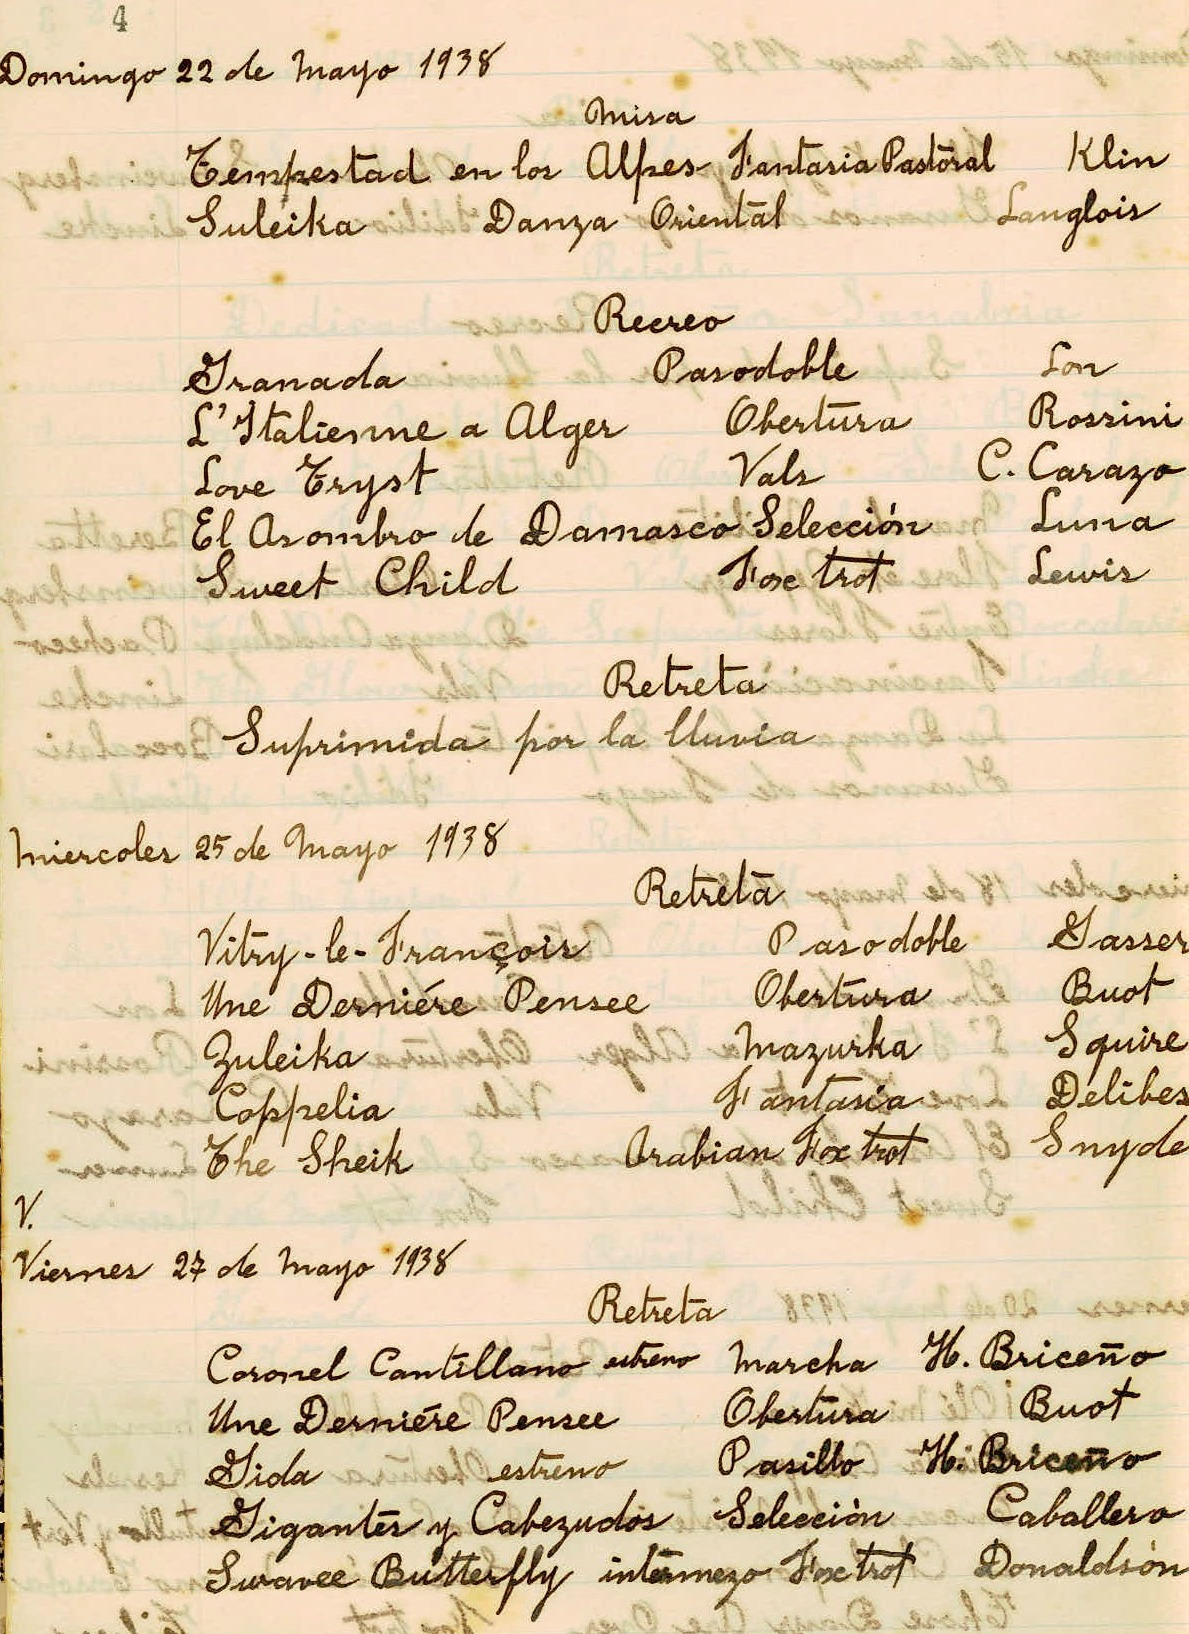 4
Domingo 22 de Mayo 1938
Misa
Tempestad en los Alpes Fantasia Pastoral Klin
Suleika Danza Oriental Langlois
Recreo
Granada Pasodoble Lon
L'Italienne a Alger Obertura Rossini
Love Tryst Vals C. Carazo
El Asombro de Damasco Selección Luna
Sweet Child Fox trot Lewis
Retreta
Suprimida por la lluvia
Miercoles 25 de Mayo 1938
Retreta
Vitry-le-François Pasodoble Gasser
Une Derniére Pensee Obertura Buot
Zuleika Mazurka Squire
Coppelia Fantasia Delibes
The Sheik Arabian Fox trot Snyde
V.
Viernes 27 de Mayo 1938
Retreta
Coronel Cantillano estreno Marcha H. Briceño
Une Derniére Pensee Obertura Buot
Gida estreno Pasillo H. Briceño
Gigantes y Cabezudos Selección Caballero
Swavee Butterfly intermezo Fox trot Donaldsón